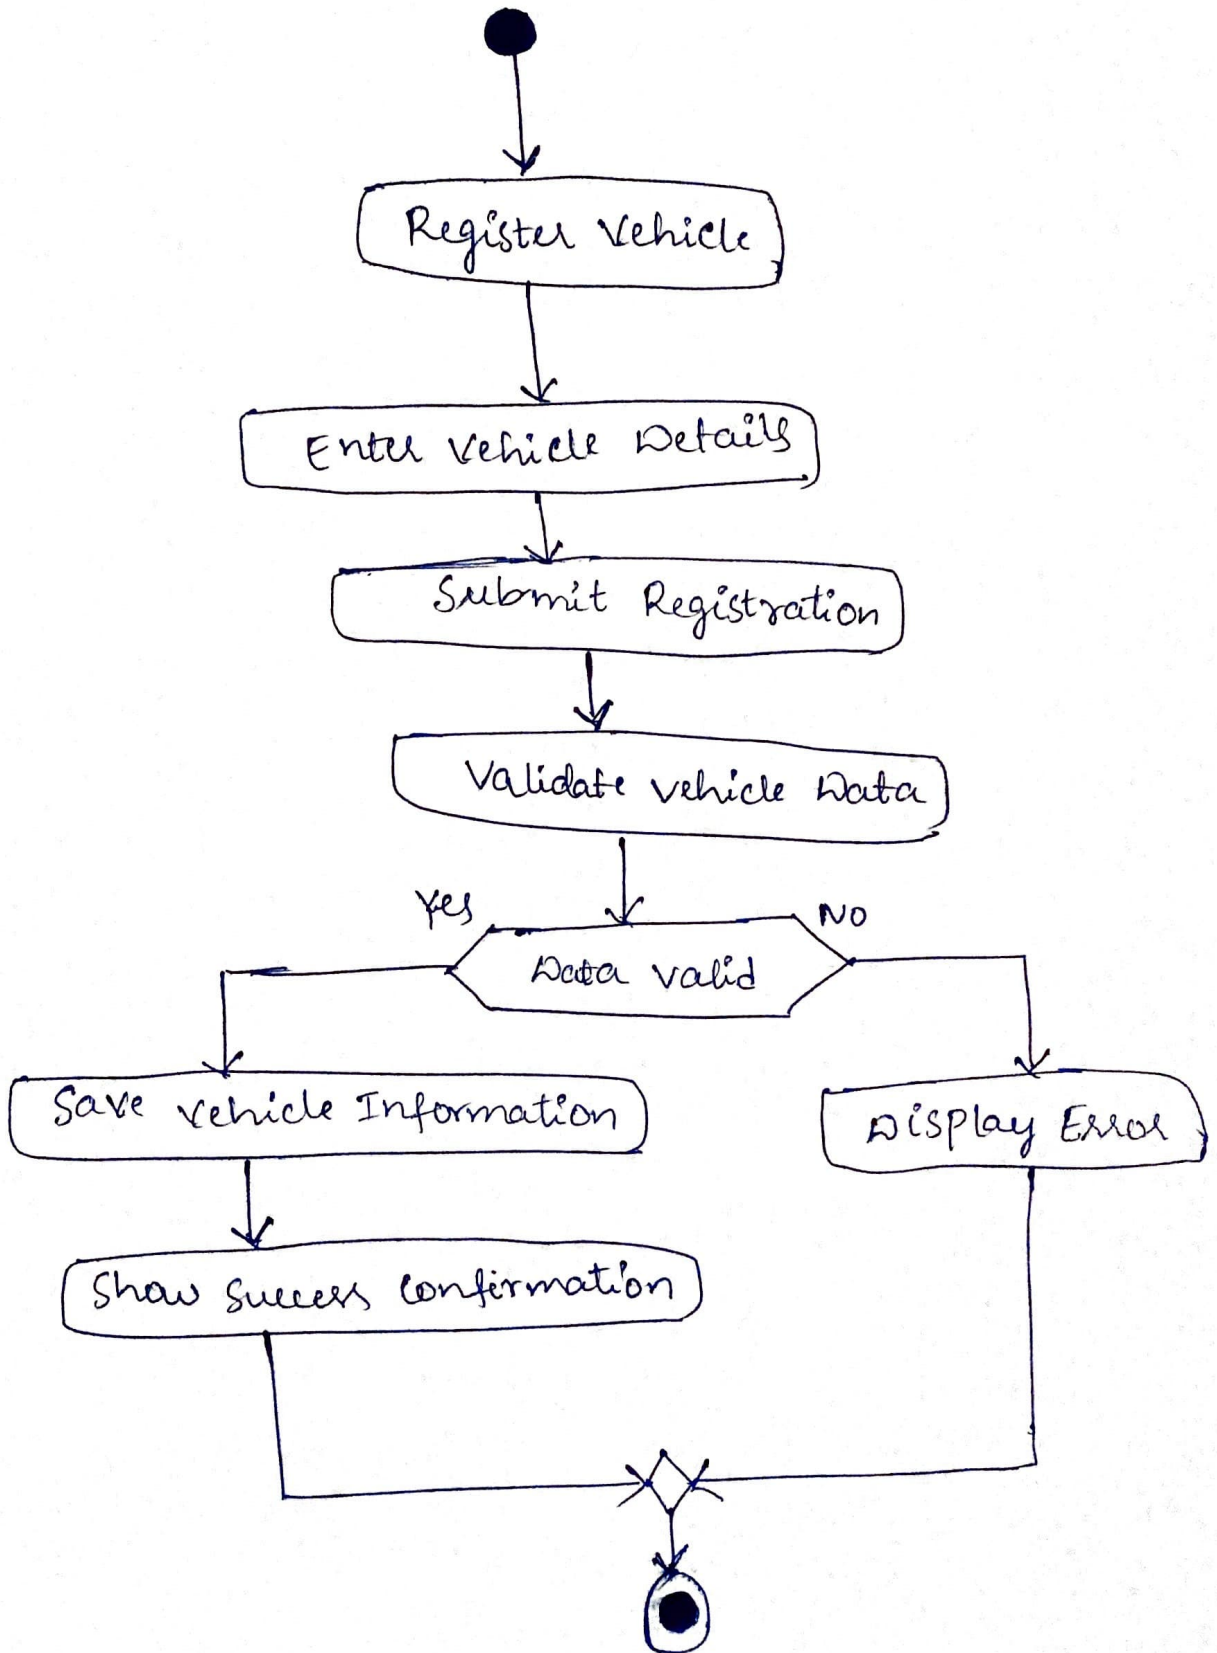 Register Vehicle
Enter Vehicle Details
Submit Registration
Validate vehicle Data
Yes
NO
Data valid
Save vehicle Information
Display Error
Show Success Confirmation